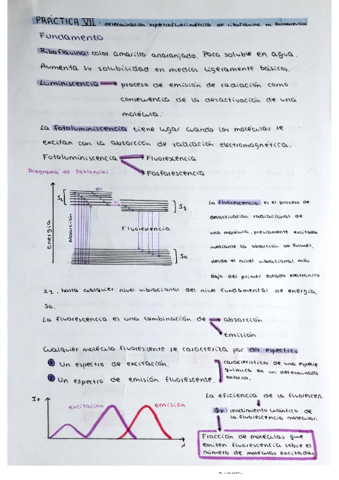 PRÁCTICA VII: determinación espectrofluorimétrica de riboflavina en
Fundamento
Riboflavina: color amarillo anaranjado. Poco soluble en agua.
Aumenta su solubilidad en medios ligeramente básicos.
Luminiscencia proceso de emisión de radiación como
consecuencia de la desactivación de una
molécula.
La fotoluminiscencia tiene lugar cuando las moléculas se
excitan con la absorción de radiación electromagnética.
Fotoluminiscencia Fluorescencia
Fosforescencia
Diagrama de Jablonski
S2
S1
Energía
Absorción
Fluorescencia
S0
La fluorescencia es el proceso de
desactivación radiacional de
una molécula, previamente excitada
mediante la absorción de
desde el nivel vibracional más
bajo del primer estado electrónico
S1, hasta cualquier nivel vibracional del nivel fundamental de energía,
S0.
La fluorescencia es una combinación de absorción
emisión
Cualquier molécula fluorescente se caracteriza por dos espectros
1 Un espectro de excitación.
2 Un espectro de emisión fluorescente.
característicos de una especie
química en un determinado
entorno.
La eficiencia de la fluorescen.
rendimiento cuántico de
la fluorescencia molecular.
excitación
emisión
λ
Fracción de moléculas que
emiten fluorescencia sobre el
número de moléculas excitadas